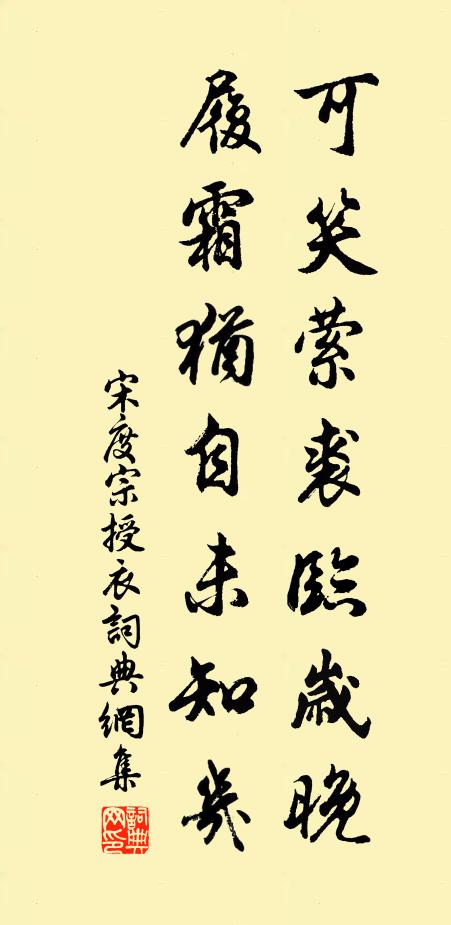 可笑索裘臨歲晚
履霜猶自未知幾
宋度宗授衣詞典網集
詞典网印